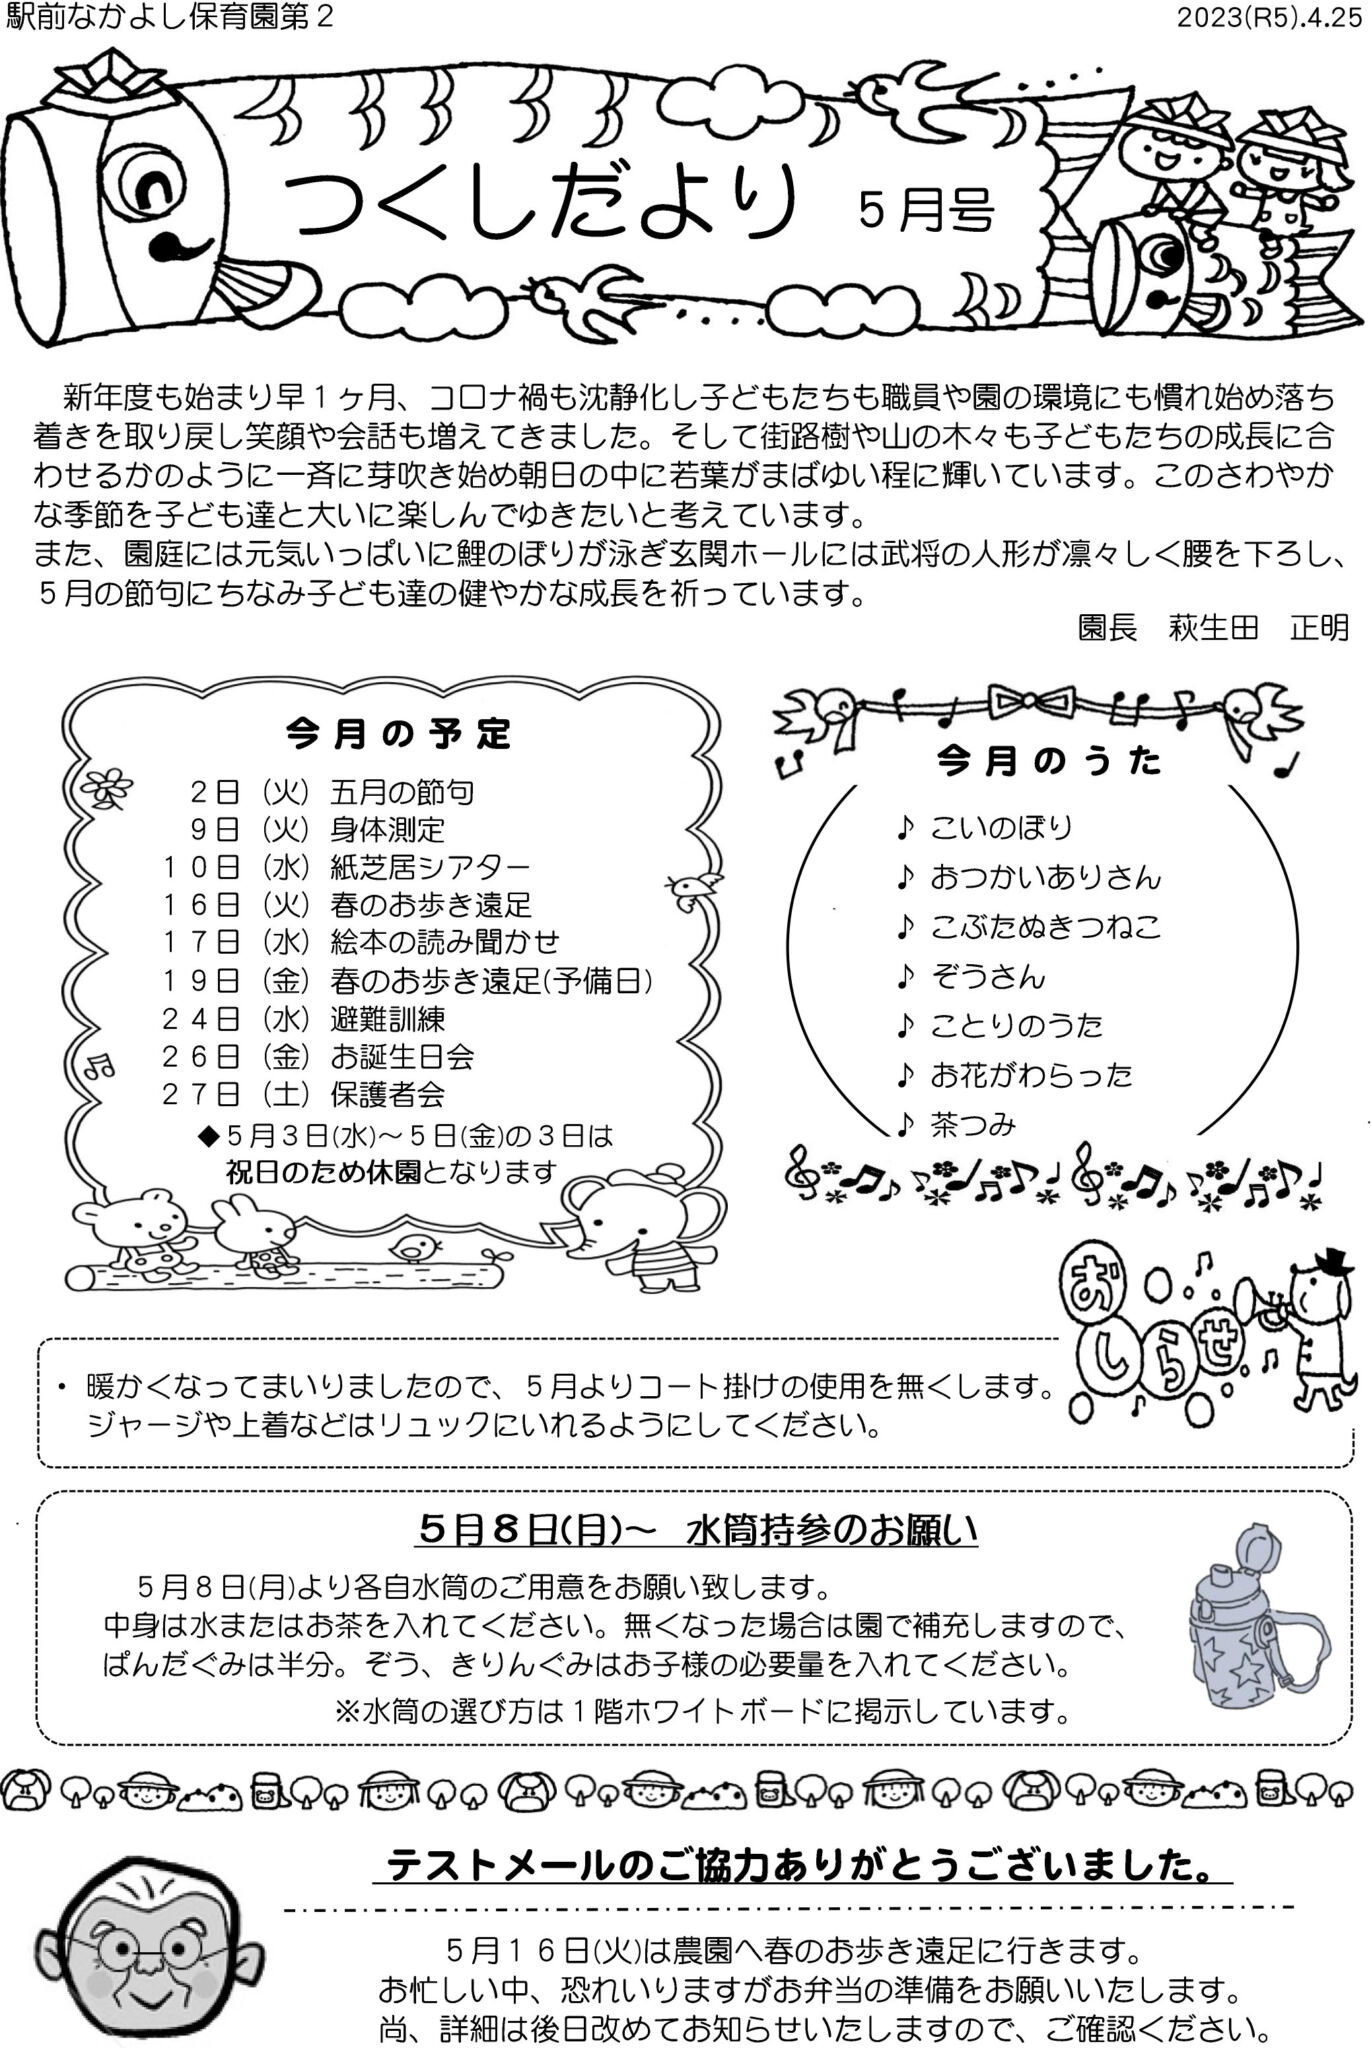 駅前なかよし保育園第２
2023(R5).4.25
つくしだより ５月号
新年度も始まり早１ヶ月、コロナ禍も沈静化し子どもたちも職員や園の環境にも慣れ始め落ち
着きを取り戻し笑顔や会話も増えてきました。そして街路樹や山の木々も子どもたちの成長に合
わせるかのように一斉に芽吹き始め朝日の中に若葉がまばゆい程に輝いています。このさわやか
な季節を子ども達と大いに楽しんでゆきたいと考えています。
また、園庭には元気いっぱいに鯉のぼりが泳ぎ玄関ホールには武将の人形が凛々しく腰を下ろし、
５月の節句にちなみ子ども達の健やかな成長を祈っています。
園長　萩生田　正明
今月の予定
２日（火）五月の節句
９日（火）身体測定
１０日（水）紙芝居シアター
１６日（火）春のお歩き遠足
１７日（水）絵本の読み聞かせ
１９日（金）春のお歩き遠足(予備日)
２４日（水）避難訓練
２６日（金）お誕生日会
２７日（土）保護者会
◆５月３日(水)～５日(金)の３日は
祝日のため休園となります
今月のうた
♪ こいのぼり
♪ おつかいありさん
♪ こぶたぬきつねこ
♪ ぞうさん
♪ ことりのうた
♪ お花がわらった
♪ 茶つみ
おしらせ
・ 暖かくなってまいりましたので、５月よりコート掛けの使用を無くします。
ジャージや上着などはリュックにいれるようにしてください。
５月８日(月)～ 水筒持参のお願い
５月８日(月)より各自水筒のご用意をお願い致します。
中身は水またはお茶を入れてください。無くなった場合は園で補充しますので、
ぱんだぐみは半分。ぞう、きりんぐみはお子様の必要量を入れてください。
※水筒の選び方は１階ホワイトボードに掲示しています。
テストメールのご協力ありがとうございました。
５月１６日(火)は農園へ春のお歩き遠足に行きます。
お忙しい中、恐れいりますがお弁当の準備をお願いいたします。
尚、詳細は後日改めてお知らせいたしますので、ご確認ください。